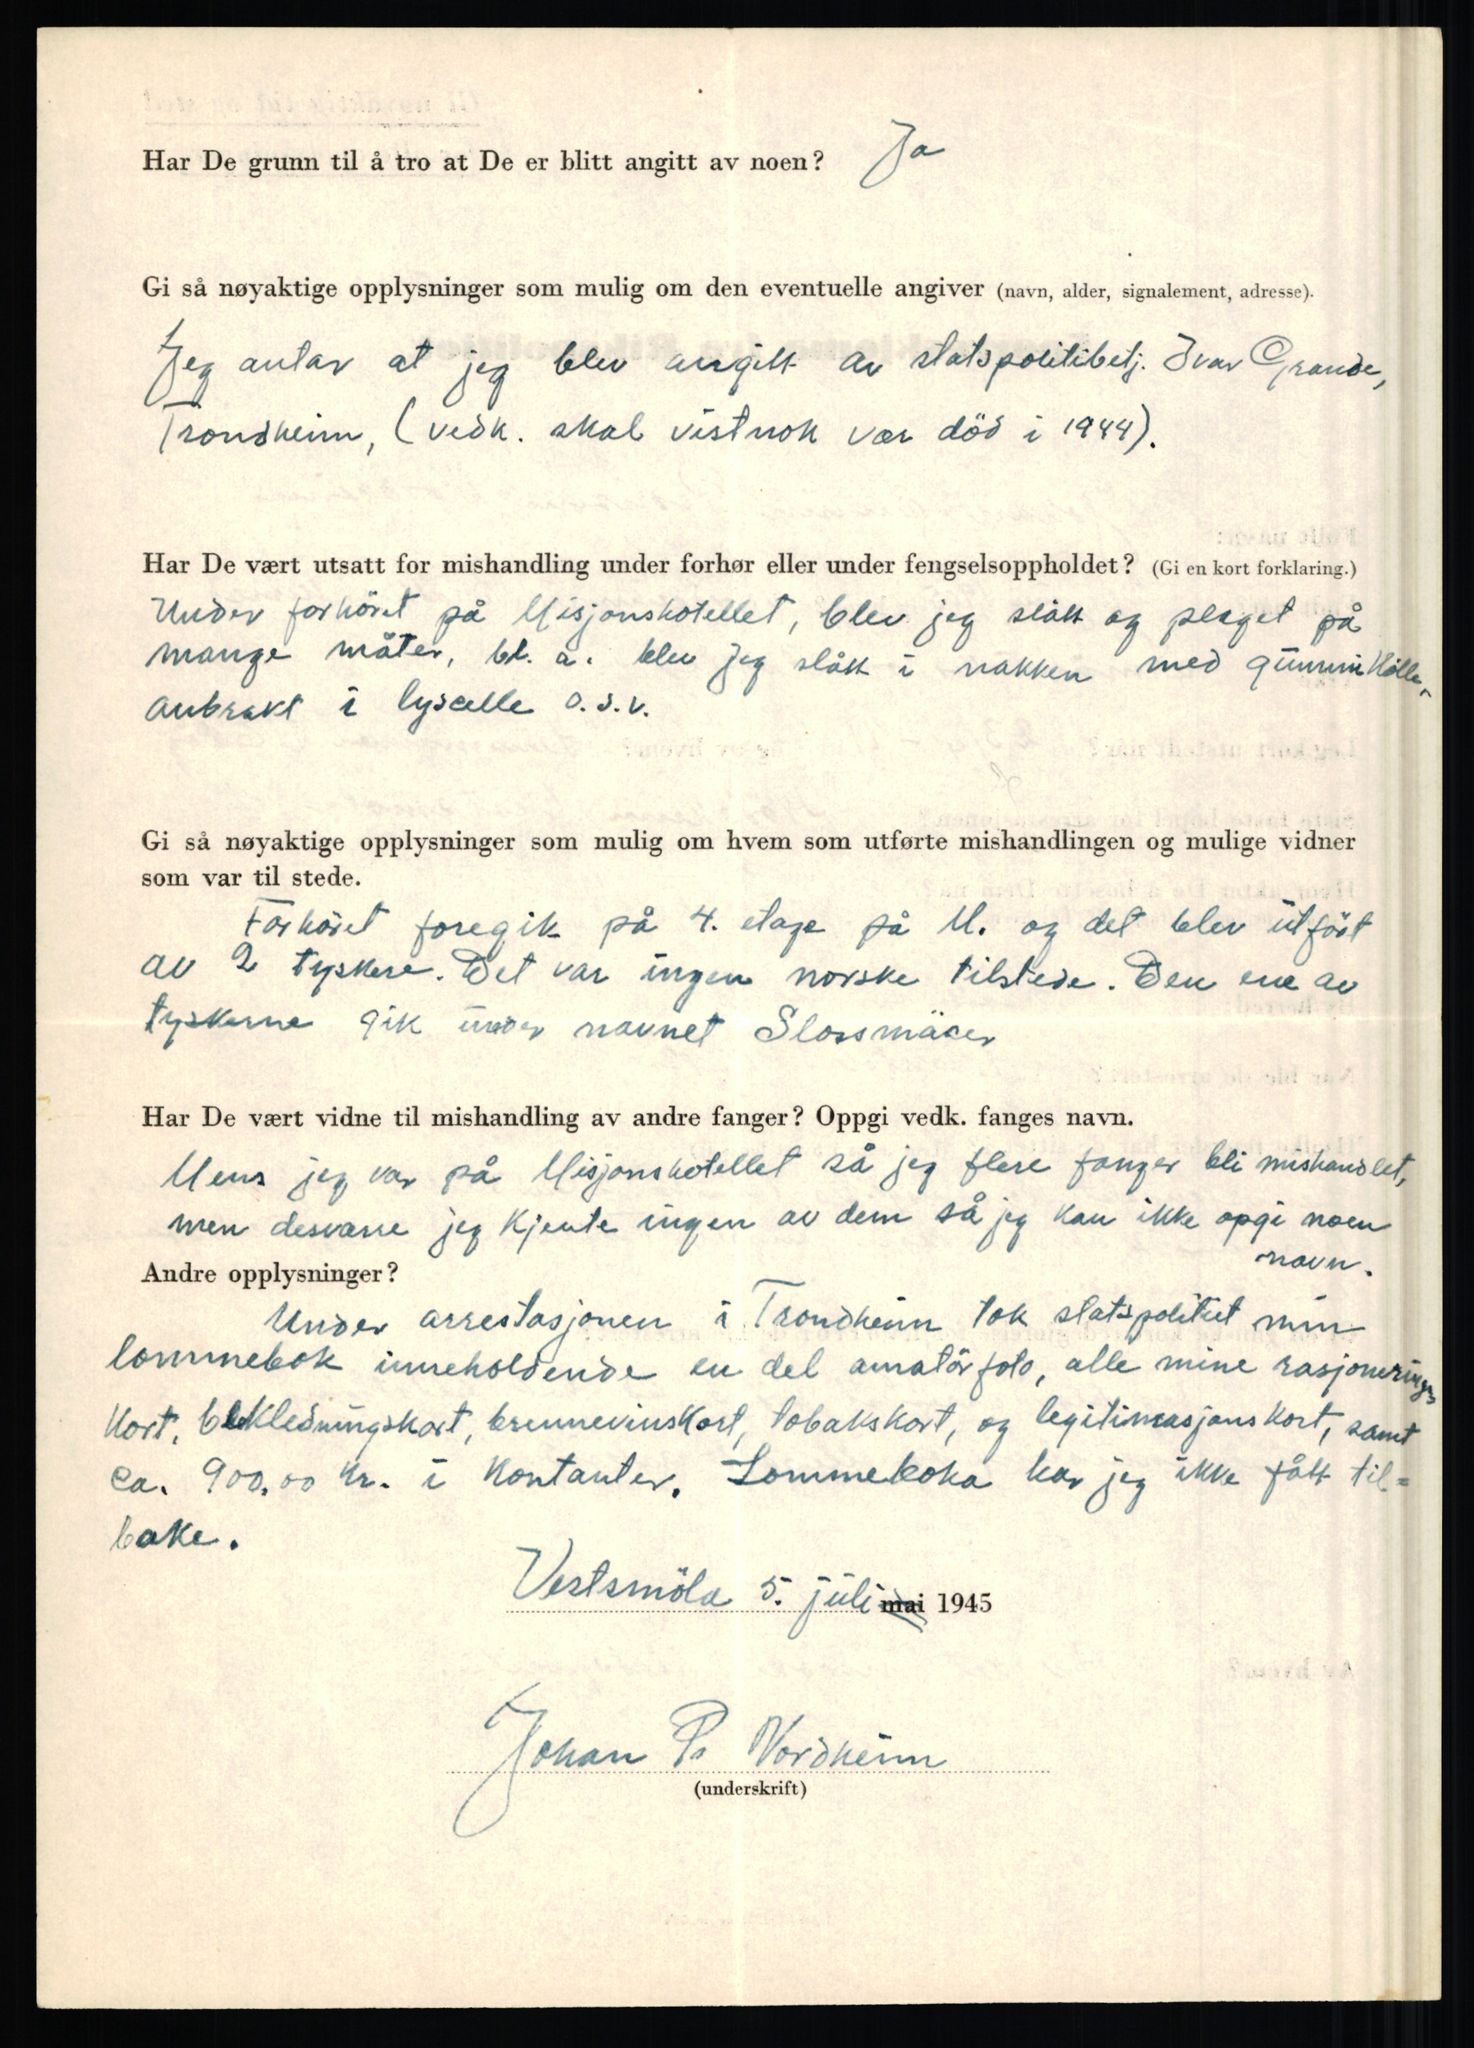 Har De grunn til å tro at De er blitt angitt av noen? Ja
Gi så nøyaktige opplysninger som mulig om den eventuelle angiver (navn, alder, signalement, adresse).
Jeg antar at jeg blev angitt av statspolitibetj. Ivar Grande,
Trondheim, (vedk. skal vistnok vær död i 1944).
Har De vært utsatt for mishandling under forhør eller under fengselsoppholdet? (Gi en kort forklaring.)
Under forhöret på Misjonshotellet, blev jeg slått og plaget på
mange måter, bl. a. blev jeg slått i nakken med gummikölle,
anbrakt i lyscelle o.s.v.
Gi så nøyaktige opplysninger som mulig om hvem som utførte mishandlingen og mulige vidner
som var til stede.
Forhöret foregik på 4. etage på M. og det blev utfört
av 2 tyskere. Det var ingen norske tilstede. Den ene av
tyskerne gik under navnet Slossmäcer
Har De vært vidne til mishandling av andre fanger? Oppgi vedk. fanges navn.
Mens jeg var på Misjonshotellet så jeg flere fanger bli mishandlet,
men desværre jeg kjente ingen av dem så jeg kan ikke opgi noen
navn.
Andre opplysninger?
Under arrestasjonen i Trondheim tok statspolitiet min
lommebok inneholdende en del amatörfoto, alle mine rasjonerings
kort, bekledningskort, brennevinskort, tobakskort, og legitimasjonskort, samt
ca. 900,00 kr. i kontanter. Lommeboka har jeg ikke fått til=
bake.
Vestsmöla 5. juli mai 1945
Johan P. Nordheim
(underskrift)